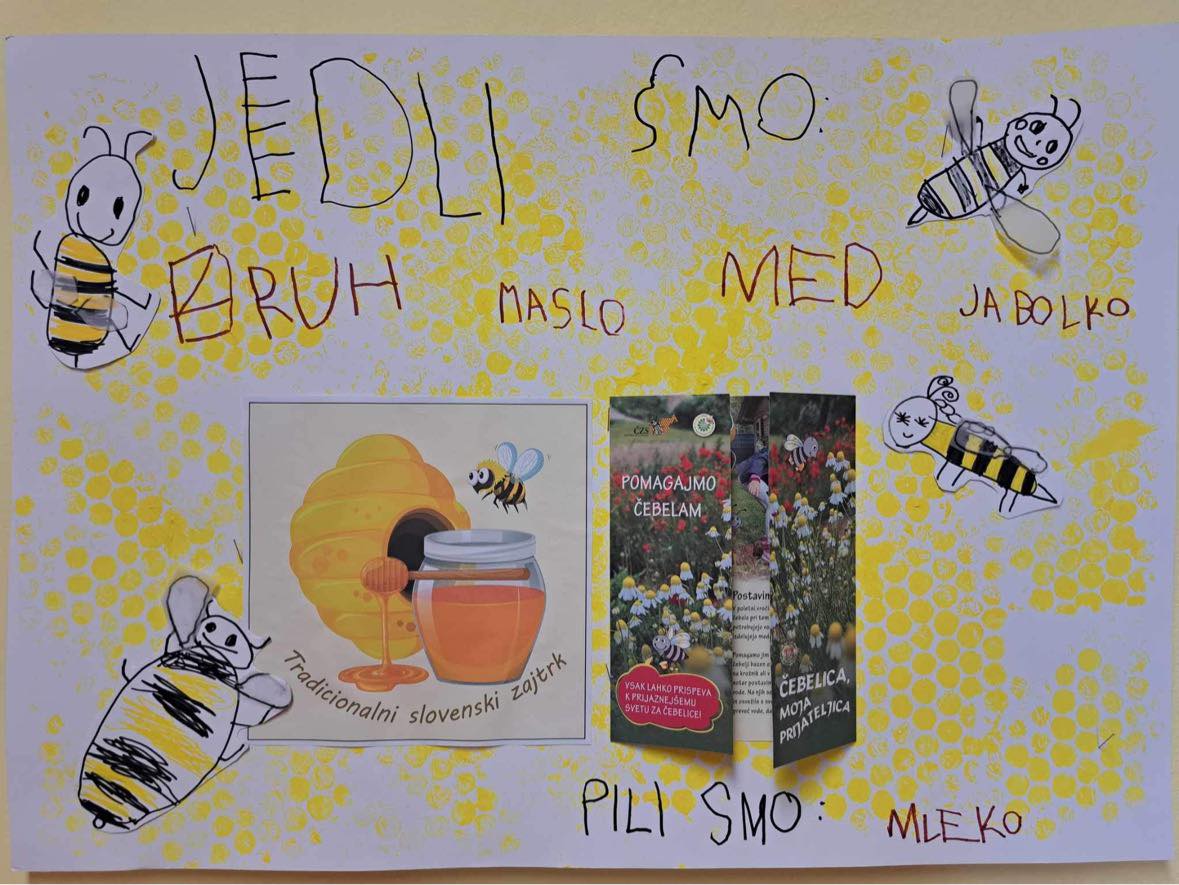 JEDLI SMO:
BRUH MASLO MED JABOLKO
Tradicionalni slovenski zajtrk
ČZS
POMAGAJMO
ČEBELAM
VSAK LAHKO PRISPEVA
K PRIJAZNEJŠEMU
SVETU ZA ČEBELICE!
Postavim
ČEBELICA,
MOJA
PRIJATELJICA
PILI SMO: MLEKO